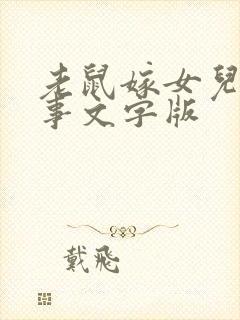 老鼠嫁女兒
事文字版
戴飛